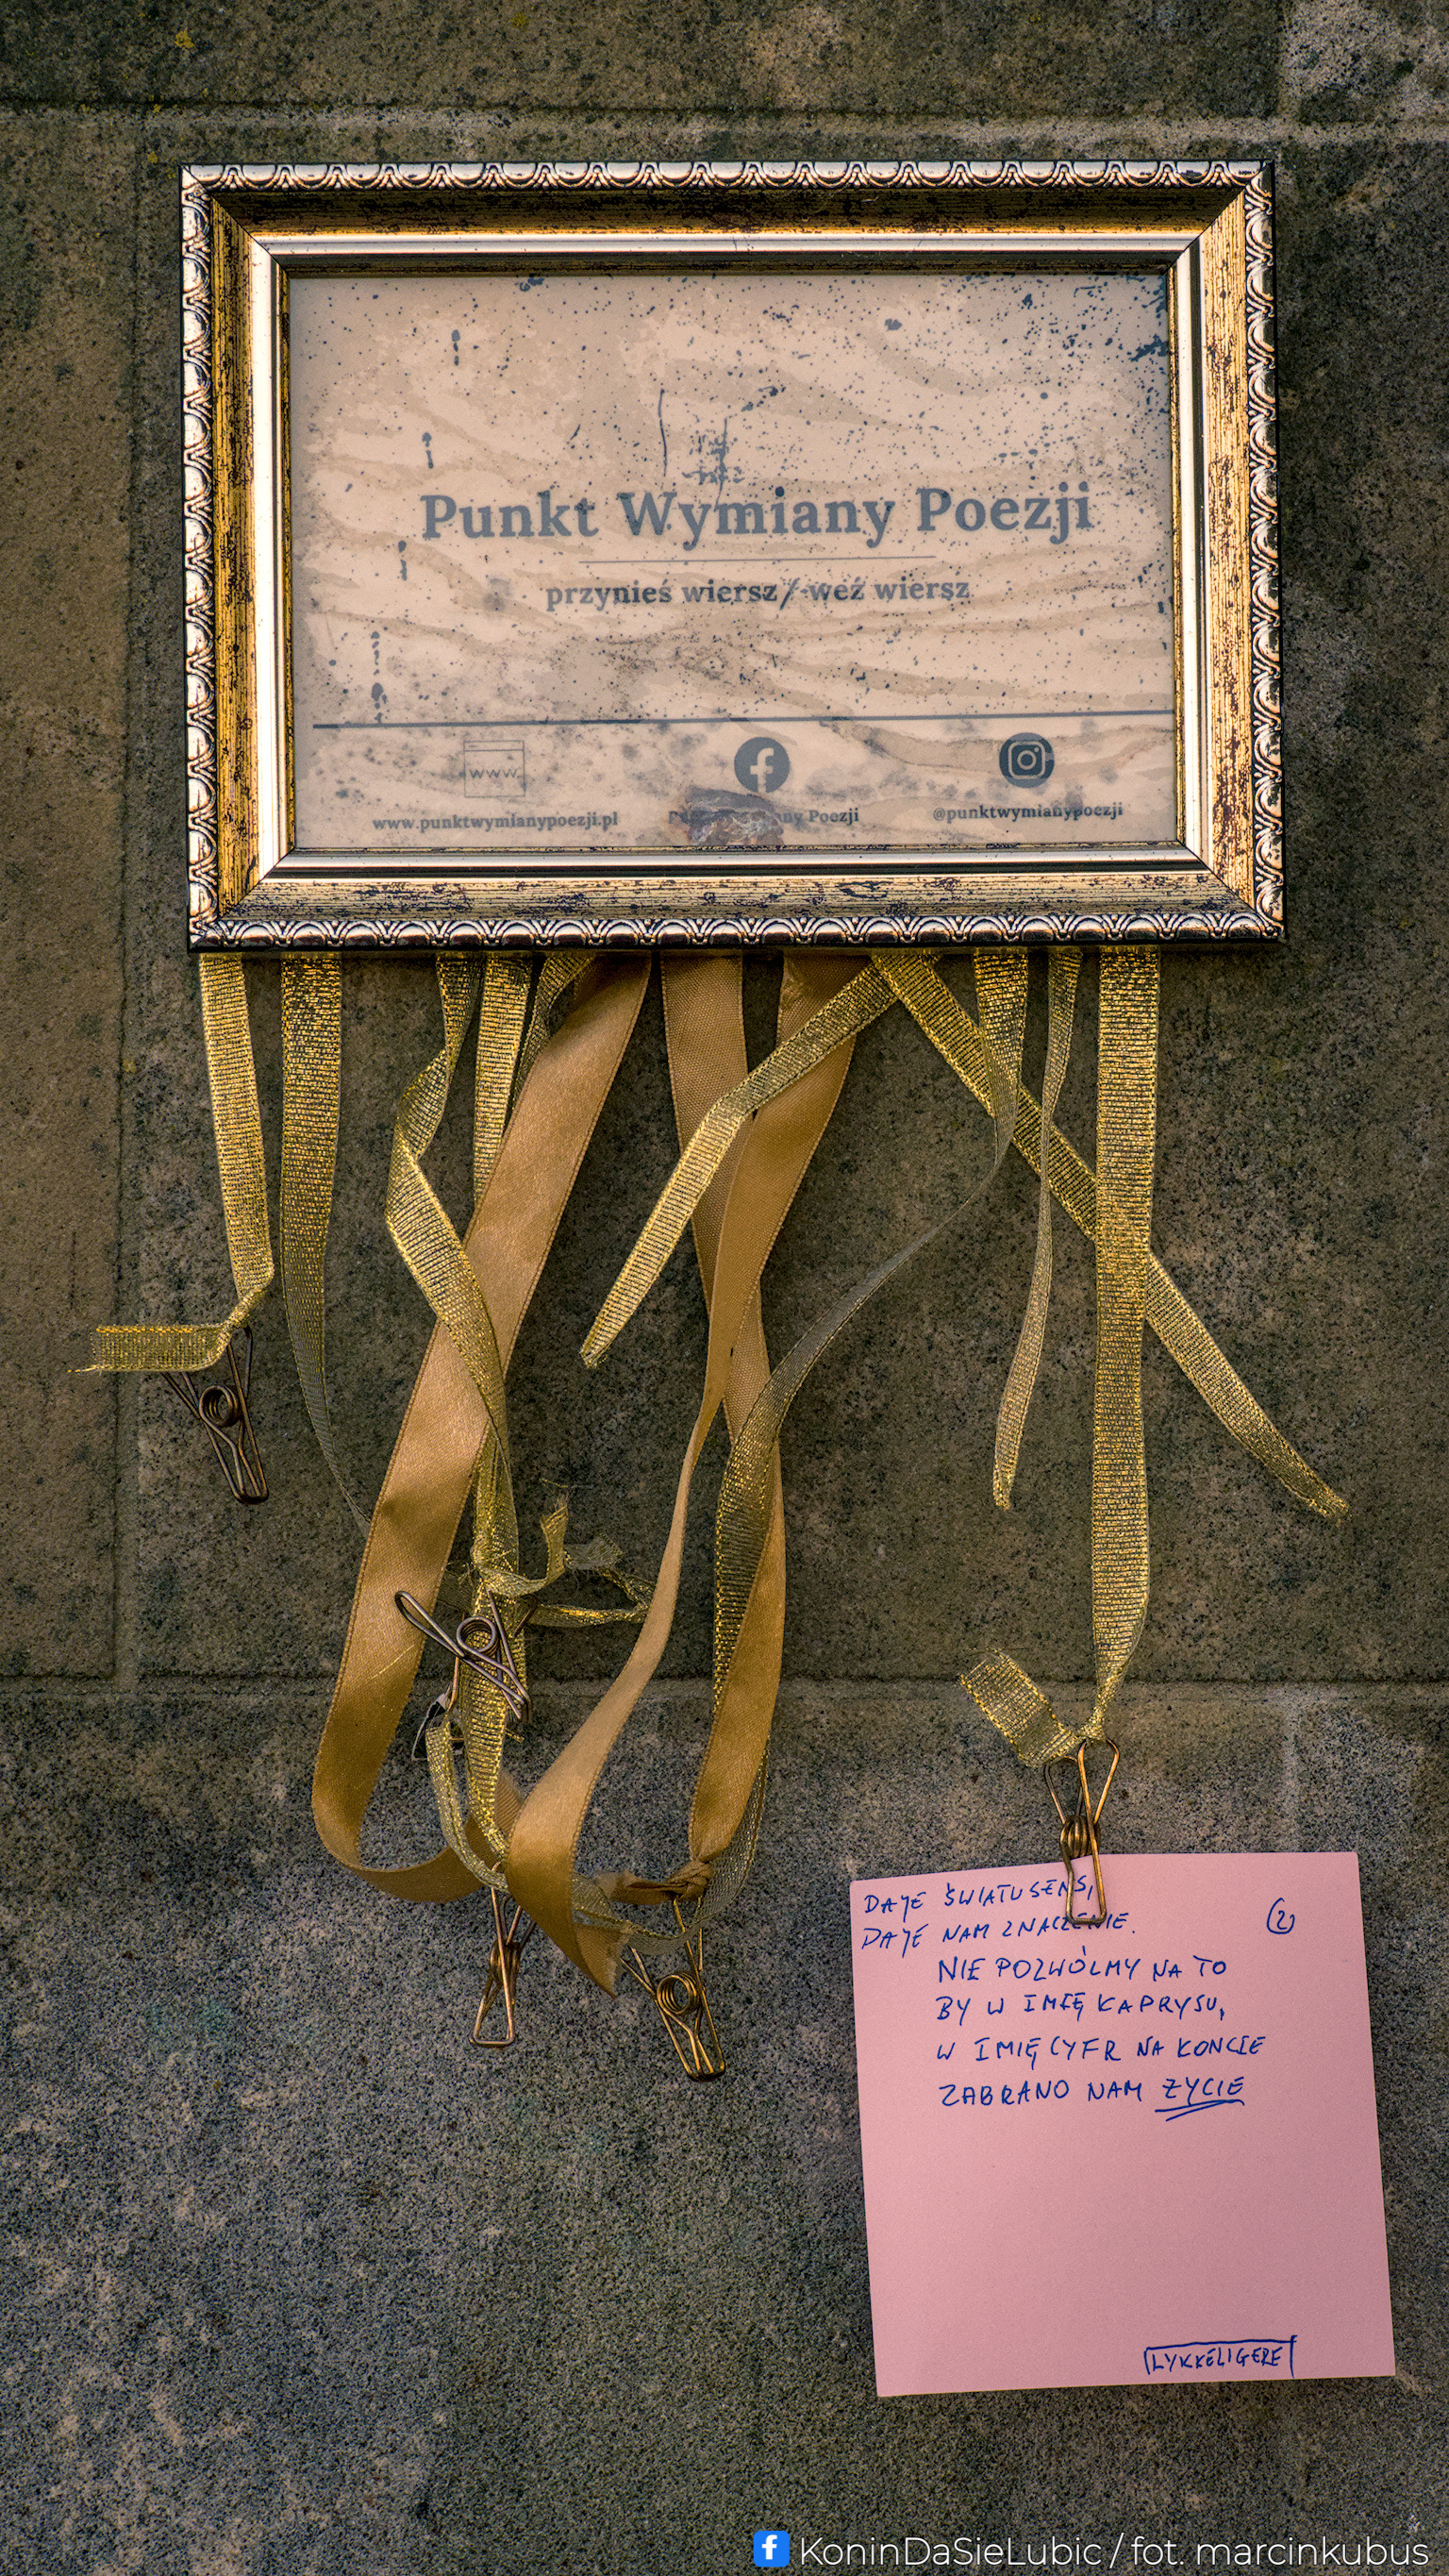 Punkt Wymiany Poezji
przynieś wiersz / weź wiersz
www
www.punktwymianypoezji.pl
Poezji
@punktwymianypoezji
DAJE ŚWIATU SENS,
DAJE NAM ZNACZENIE.
(2)
NIE POZWÓLMY NA TO
BY W IMIĘ KAPRYSU,
W IMIĘ CYFR NA KONCIE
ZABRANO NAM ŻYCIE
LYKKELIGERE
KoninDaSieLubic / fot. marcinkubus